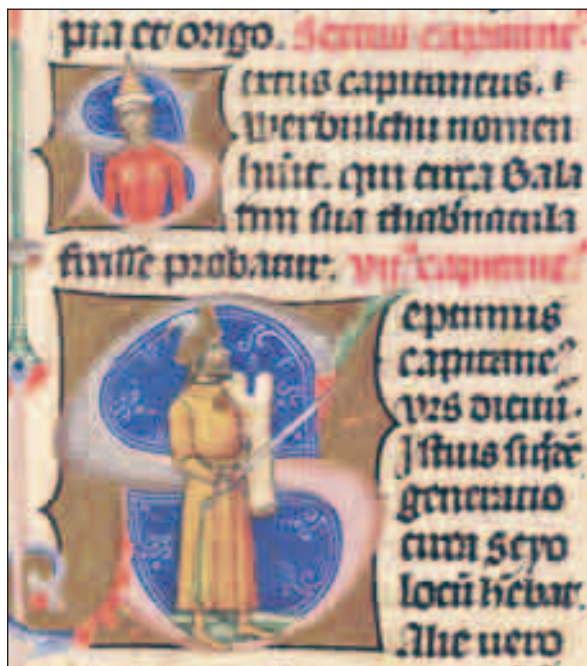 pra et origo. Sextus capitaneꝰ
extus capitaneus.
Werbulchu nomen
hūit. qui circa Bala
ton sua thab̄nacula
fixisse probatur. vijꝰ capitaneꝰ
eptimus
capitaneꝰ
vrs
Istius
generatio
circa Seyo
locū
Alie uero